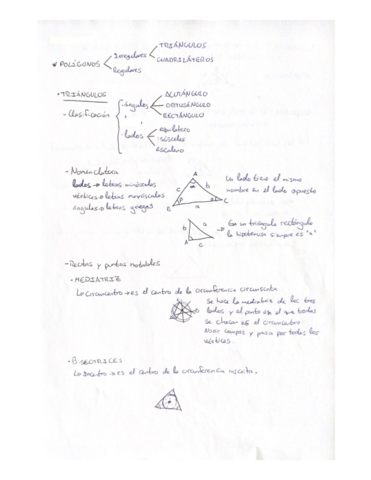 TRIÁNGULOS
Irregulares
CUADRILÁTEROS
* POLÍGONOS
Regulares
- TRIÁNGULOS
ACUTÁNGULO
ángulos
OBTUSÁNGULO
- Clasificación
RECTÁNGULO
equilátero
lados
isósceles
escaleno
- Nomenclatura
lados → letras minúsculas
vértices → letras mayúsculas
ángulos → letras griegas
A
c
b
B
a
C
Un lado tiene el mismo
nombre en el lado opuesto
b
a
A
c
En un triángulo rectángulo
la hipotenusa siempre es "a"
- Rectas y puntos notables
- MEDIATRIZ
Lo circuncentro → es el centro de la circunferencia circunscrita
Se hace la mediatriz de los tres
lados y el punto en el que todas
se chocan es el circuncentro.
compas y pasa por todos los
vértices.
- BISECTRICES
Lo Incentro → es el centro de la circunferencia inscrita.